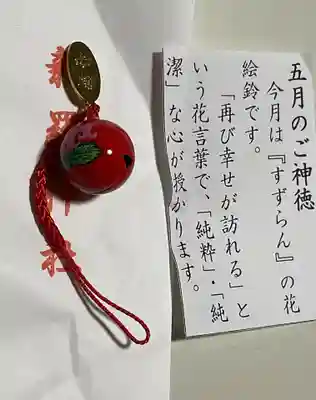 五月のご神徳
今月は『すずらん』の花
絵鈴です。
「再び幸せが訪れる」と
いう花言葉で、「純粋」・「純
潔」な心が授かります。